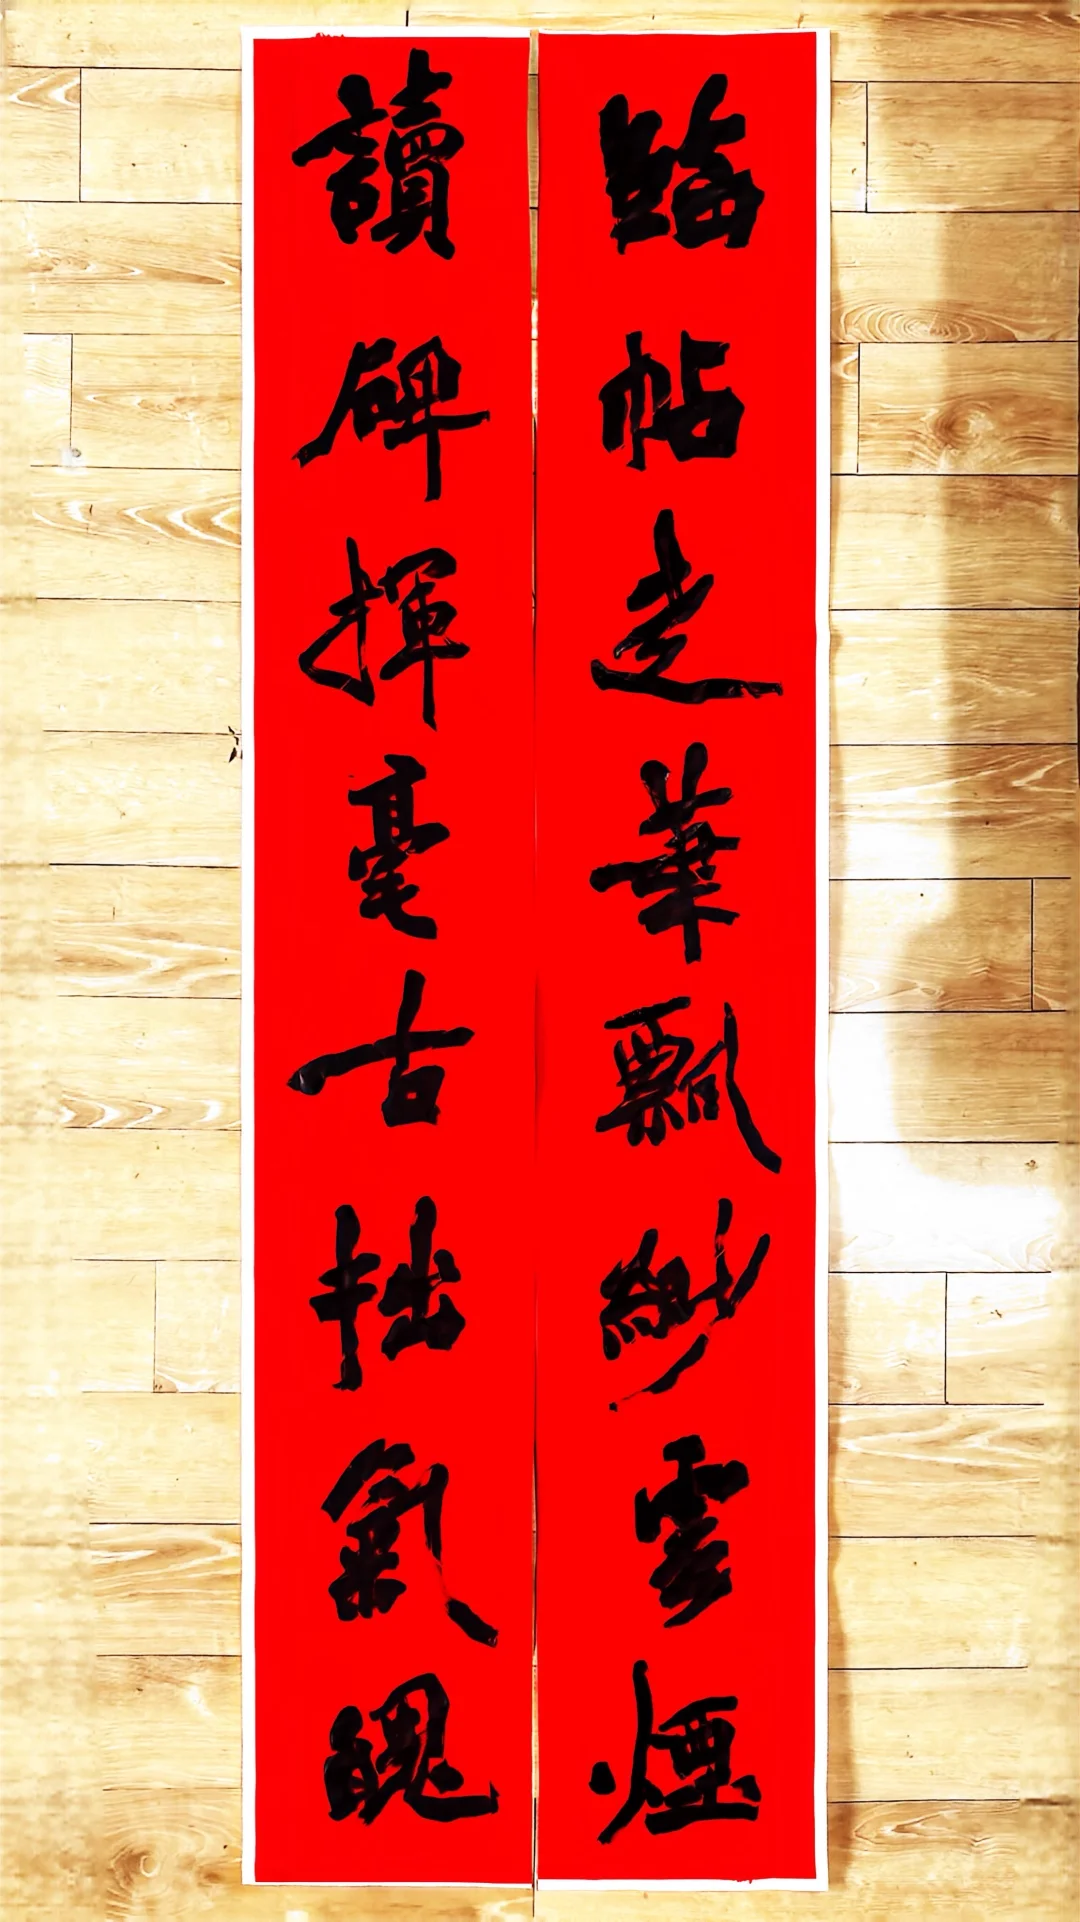 臨帖走筆飄緲雲煙
讀碑揮毫古拙氣魄